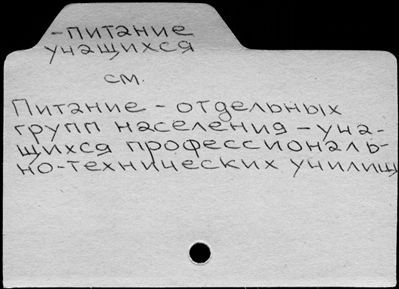 -питание
учащихся
см.
Питание - отдельных
групп населения - уча-
щихся профессиональ-
но-технических училищ